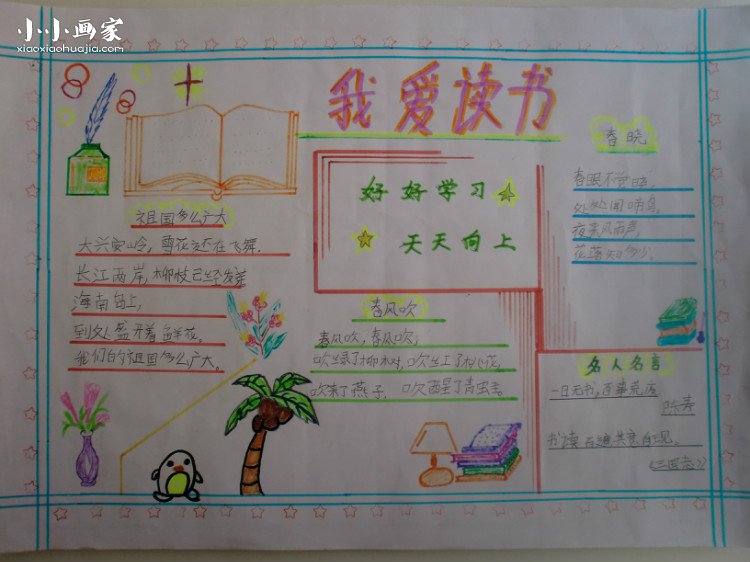 小小画家
xiaoxiaohuajia.com
我爱读书
好好学习
天天向上
春晓
春眠不觉晓,
处处闻啼鸟,
夜来风雨声,
花落知多少,
祖国多么广大
大兴安岭,雪花还在飞舞.
长江两岸,柳枝已经发芽
海南岛上,
到处盛开着鲜花。
我们的祖国多么广大。
春风吹
春风吹,春风吹,
吹绿了柳树,吹红了桃花,
吹来了燕子,吹醒了青蛙。
名人名言
一日无书,百事荒废
陈寿
书读百遍其意自现。
《三国志》